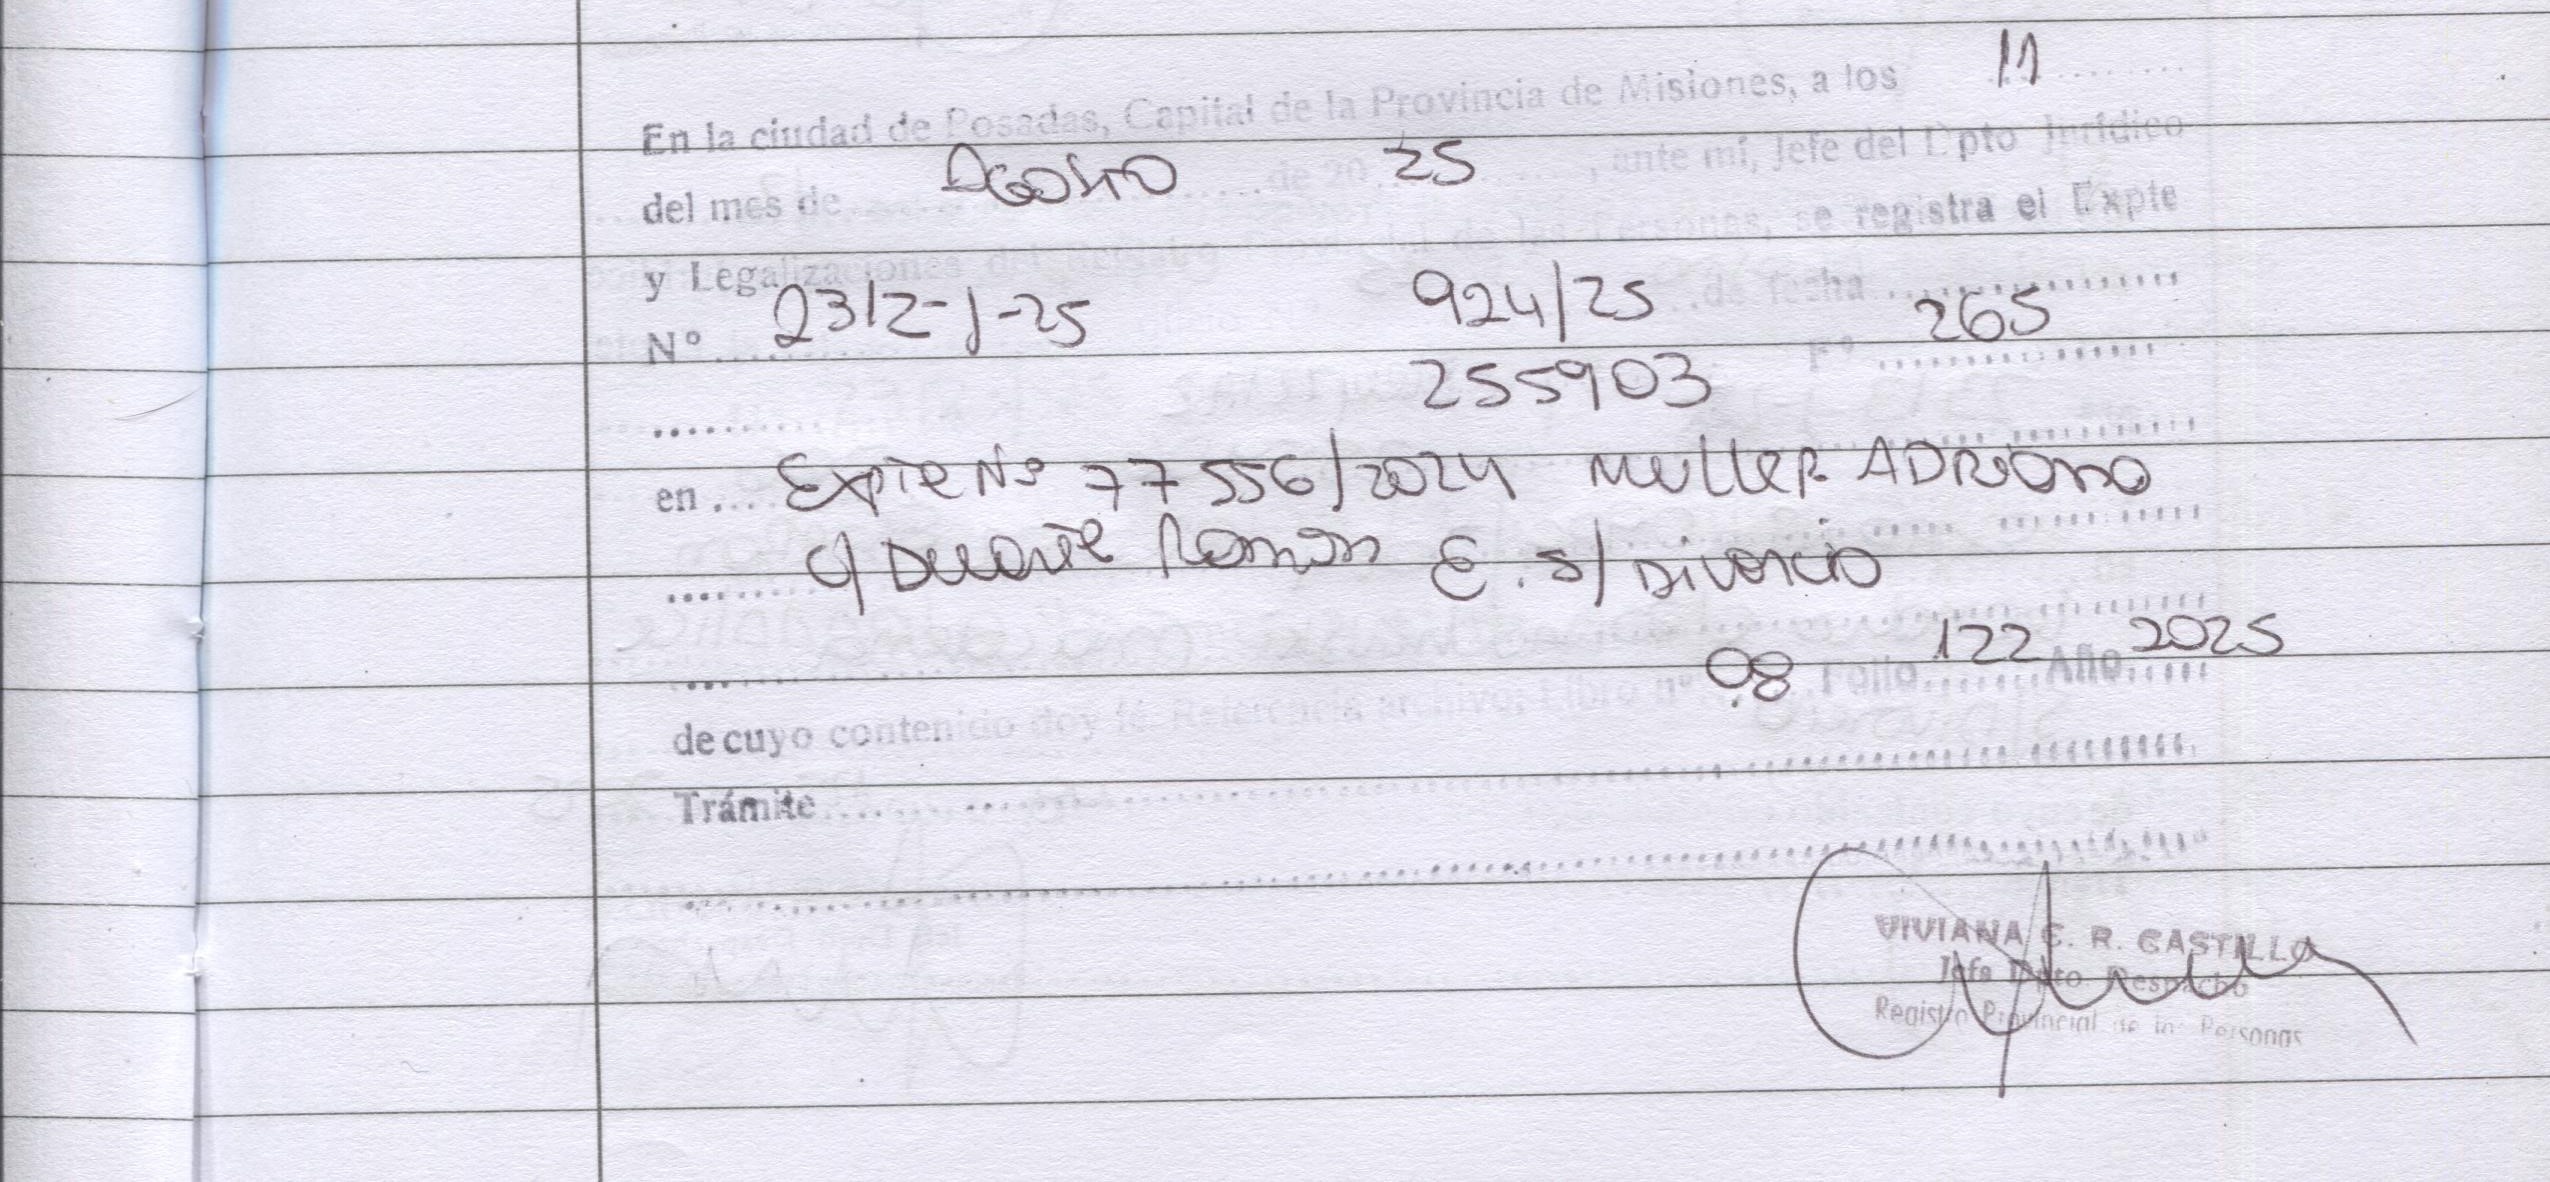 En la ciudad de Posadas, Capital de la Provincia de Misiones, a los 11
del mes de Agosto de 20 25, ante mí, Jefe del Dpto Jurídico
y Legalizaciones del Registro Provincial de las Personas, se registra el Expte
Nº 2312-J-25 924/25 de fecha
Fº 265
255903
en Expte Nº 77556/2024 Muller Adriana
c/ Duarte Ramon E. s/ Divorcio
de cuyo contenido doy fé. Referencia archivo; Libro nº 08 Folio 122 Año 2025
Trámite
VIVIANA C. R. CASTILLO
Jefa Dpto. Despacho
Registro Provincial de las Personas